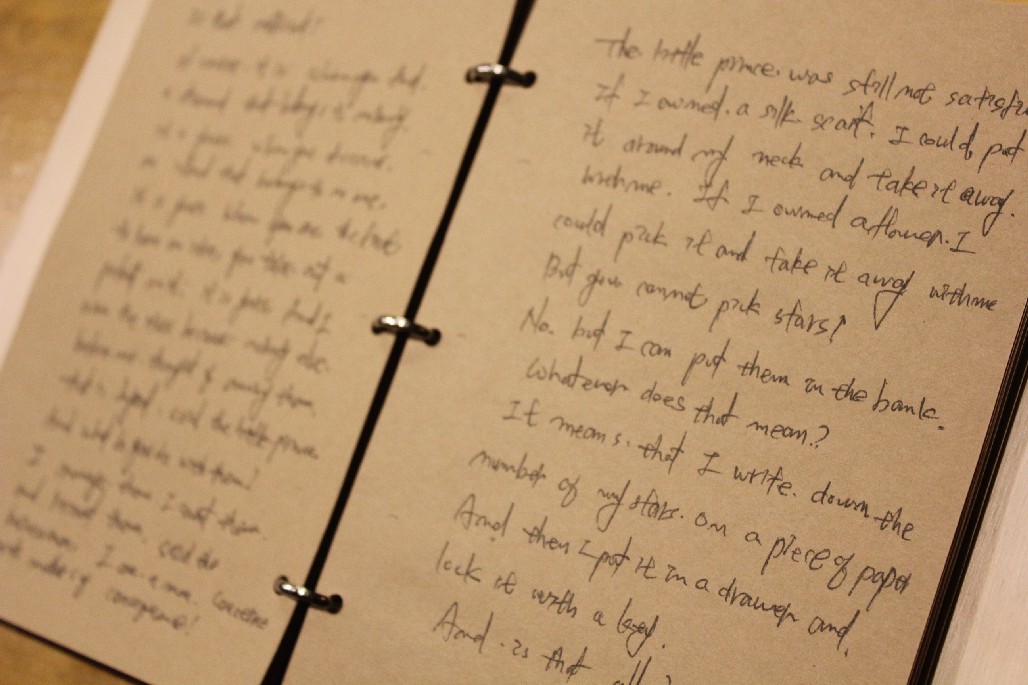 is that
of course it is when you find
a diamond that belongs to nobody
it is yours. when you discover
an island that belongs to no one.
it is yours. When you are the first
to have an idea, you take out a
patent on it. it is yours. And I
own the stars because nobody else
before me thought of owning them.
that is logical. said the little prince.
And what do you do with them?
I manage them. I count them
and recount them. said the
businessman. I am a man. concerned
with matters of consequence!
The little prince. was still not satisfi
If I owned. a silk scarf. I could, put
it around my neck and take it away.
with me. If I owned a flower. I
could pick it and take it away with me
But you cannot pick stars!
No. but I can put them in the bank.
Whatever does that mean?
It means. that I write. down the
number of my stars. on a piece of paper
And then I put it in a drawer and,
lock it with a key.
And. is that all?